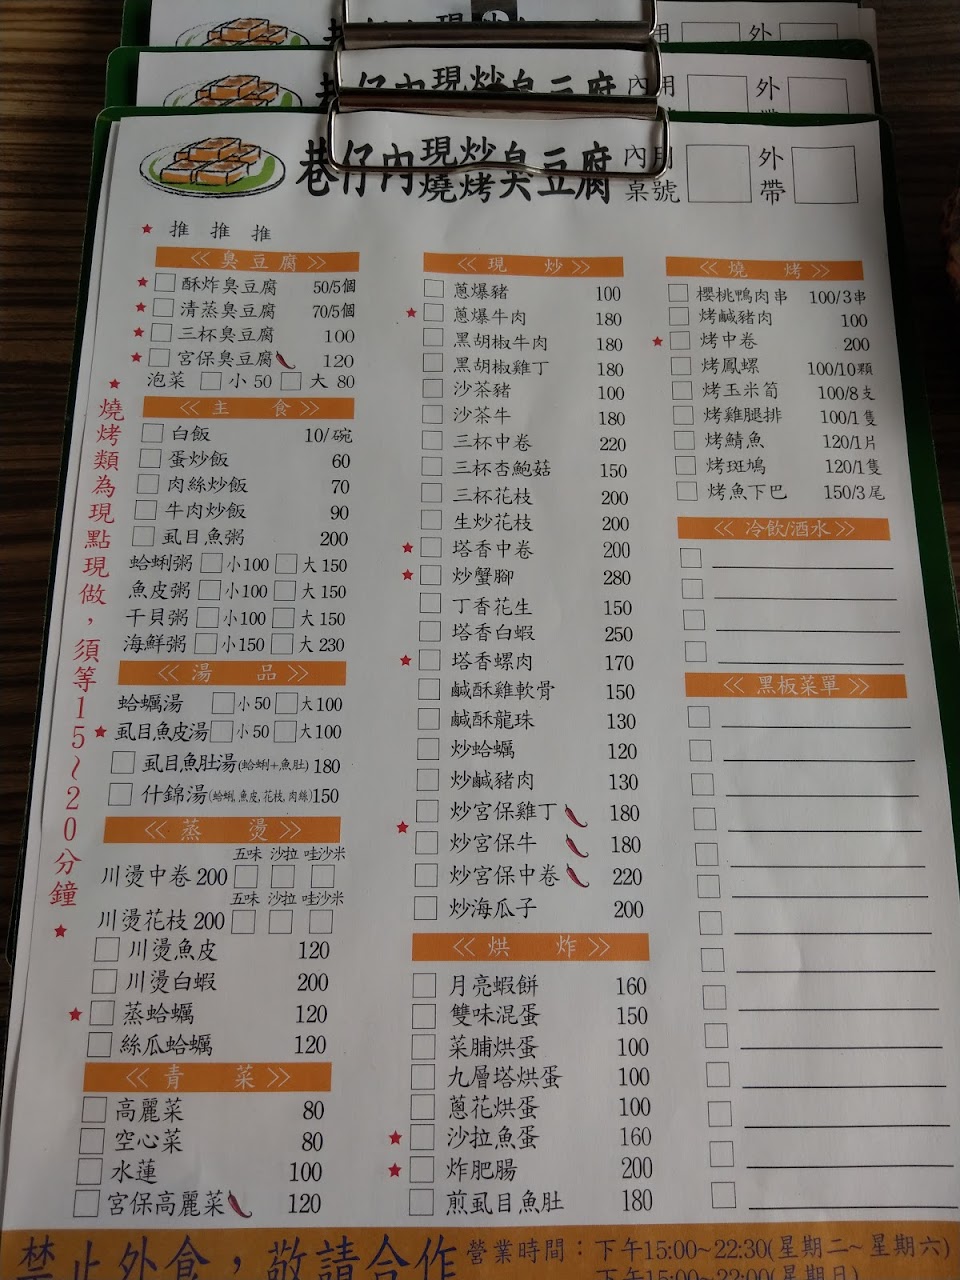 巷仔內現炒燒烤臭豆腐 內用桌號 外帶
★ 推 推 推
<< 臭豆腐 >>
★ 酥炸臭豆腐 50/5個
★ 清蒸臭豆腐 70/5個
★ 三杯臭豆腐 100
★ 宮保臭豆腐 120
泡菜 小50 大80
<< 主 食 >>
白飯 10/碗
蛋炒飯 60
肉絲炒飯 70
牛肉炒飯 90
虱目魚粥 200
蛤蜊粥 小100 大150
魚皮粥 小100 大150
干貝粥 小100 大150
海鮮粥 小150 大230
<< 湯 品 >>
蛤蠣湯 小50 大100
★ 虱目魚皮湯 小50 大100
虱目魚肚湯(蛤蜊+魚肚) 180
什錦湯(蛤蜊,魚皮,花枝,肉絲) 150
<< 蒸 燙 >>
五味 沙拉 哇沙米
川燙中卷 200
五味 沙拉 哇沙米
川燙花枝 200
川燙魚皮 120
川燙白蝦 200
★ 蒸蛤蠣 120
絲瓜蛤蠣 120
<< 青 菜 >>
高麗菜 80
空心菜 80
水蓮 100
宮保高麗菜 120
★ 燒烤類為現點現做,須等15~20分鐘 ★
<< 現 炒 >>
蔥爆豬 100
★ 蔥爆牛肉 180
黑胡椒牛肉 180
黑胡椒雞丁 180
沙茶豬 100
沙茶牛 180
三杯中卷 220
三杯杏鮑菇 150
三杯花枝 200
生炒花枝 200
★ 塔香中卷 200
★ 炒蟹腳 280
丁香花生 150
塔香白蝦 250
★ 塔香螺肉 170
鹹酥雞軟骨 150
鹹酥龍珠 130
炒蛤蠣 120
炒鹹豬肉 130
炒宮保雞丁 180
★ 炒宮保牛 180
炒宮保中卷 220
炒海瓜子 200
<< 烘 炸 >>
月亮蝦餅 160
雙味混蛋 150
菜脯烘蛋 100
九層塔烘蛋 100
蔥花烘蛋 100
★ 沙拉魚蛋 160
★ 炸肥腸 200
煎虱目魚肚 180
<< 燒 烤 >>
櫻桃鴨肉串 100/3串
烤鹹豬肉 100
★ 烤中卷 200
烤鳳螺 100/10顆
烤玉米筍 100/8支
烤雞腿排 100/1隻
烤鯖魚 120/1片
烤斑鳩 120/1隻
烤魚下巴 150/3尾
<< 冷飲/酒水 >>
<< 黑板菜單 >>
禁止外食,敬請合作
營業時間:下午15:00~22:30(星期二~星期六)
下午15:00~22:00(星期日)